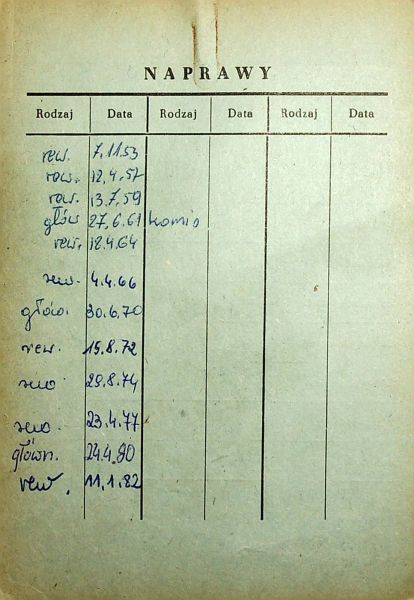 NAPRAWY
Rodzaj Data Rodzaj Data Rodzaj Data
rew. 7.11.53
rew. 12.4.57
rew. 13.7.59
głów 27.6.61 komis
rew. 18.4.64
rew. 4.4.66
głów. 30.6.70
rew. 15.8.72
rew 29.8.74
rew. 23.4.77
główn. 24.4.80
rew. 11.1.82